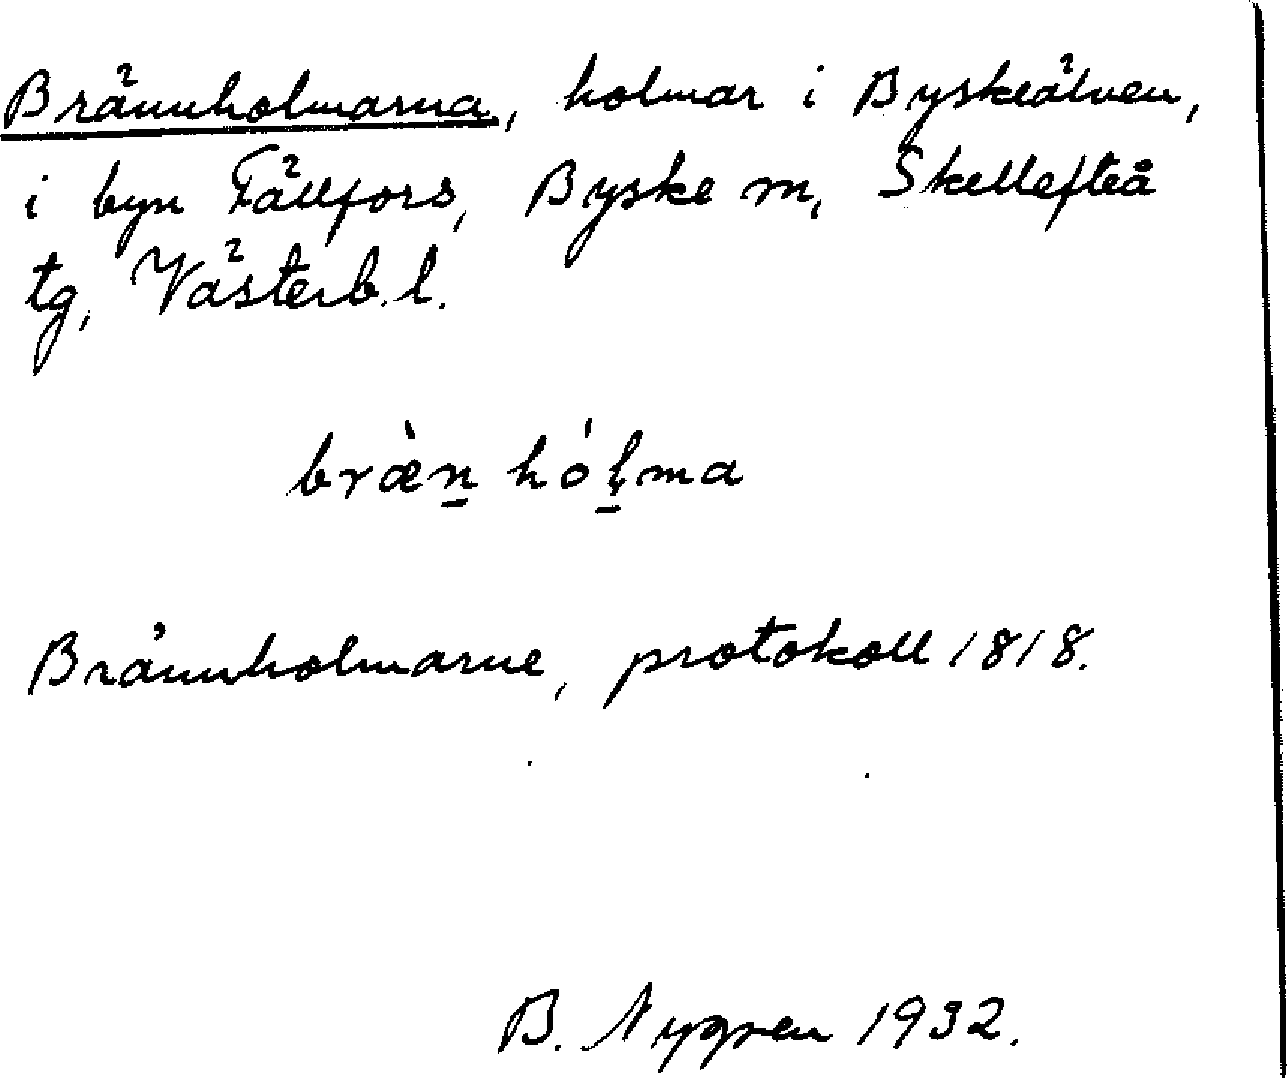 Brännholmarna, holmar i Byskeälven,
i byn Fällfors, Byske sn, Skellefteå
tg, Västerb. l.
bræ̀n̲ hó​ḷ̲ma
Brännholmarne, protokoll 1818.
B. Nygren 1932.